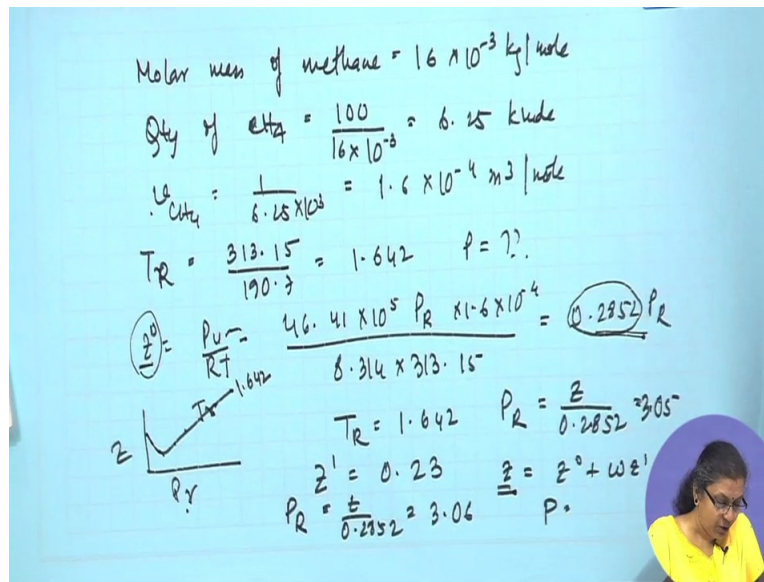 Molar mess of methane = 16 × 10⁻³ kg/mole
Qty of CH4 = 100 / 16 × 10⁻³ = 6.25 kmole
v CH4 = 1 / 6.25 × 10³ = 1.6 × 10⁻⁴ m3/mole
TR = 313.15 / 190.7 = 1.642 P = ??
z⁰ = Pv / RT = 46.41 × 10⁵ PR × 1.6 × 10⁻⁴ / 8.314 × 313.15 = 0.2852 PR
1.642
Tr
Z
Pr
TR = 1.642 PR = Z / 0.2852 = 3.05
z' = 0.23 z = z⁰ + ωz'
PR = z / 0.2852 = 3.06 P =